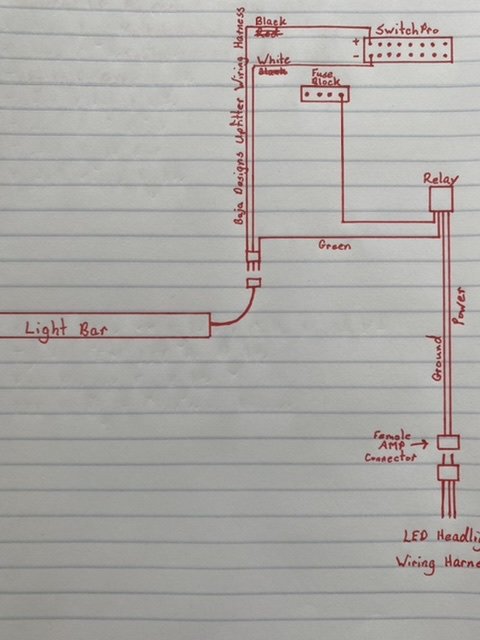 Black
Red
SwitchPro
+
-
White
Black
Fuse
Block
Baja Designs Upfitter Wiring Harness
Relay
Green
Power
Ground
Light Bar
Female
AMP
Connector
LED Headlig
Wiring Harne